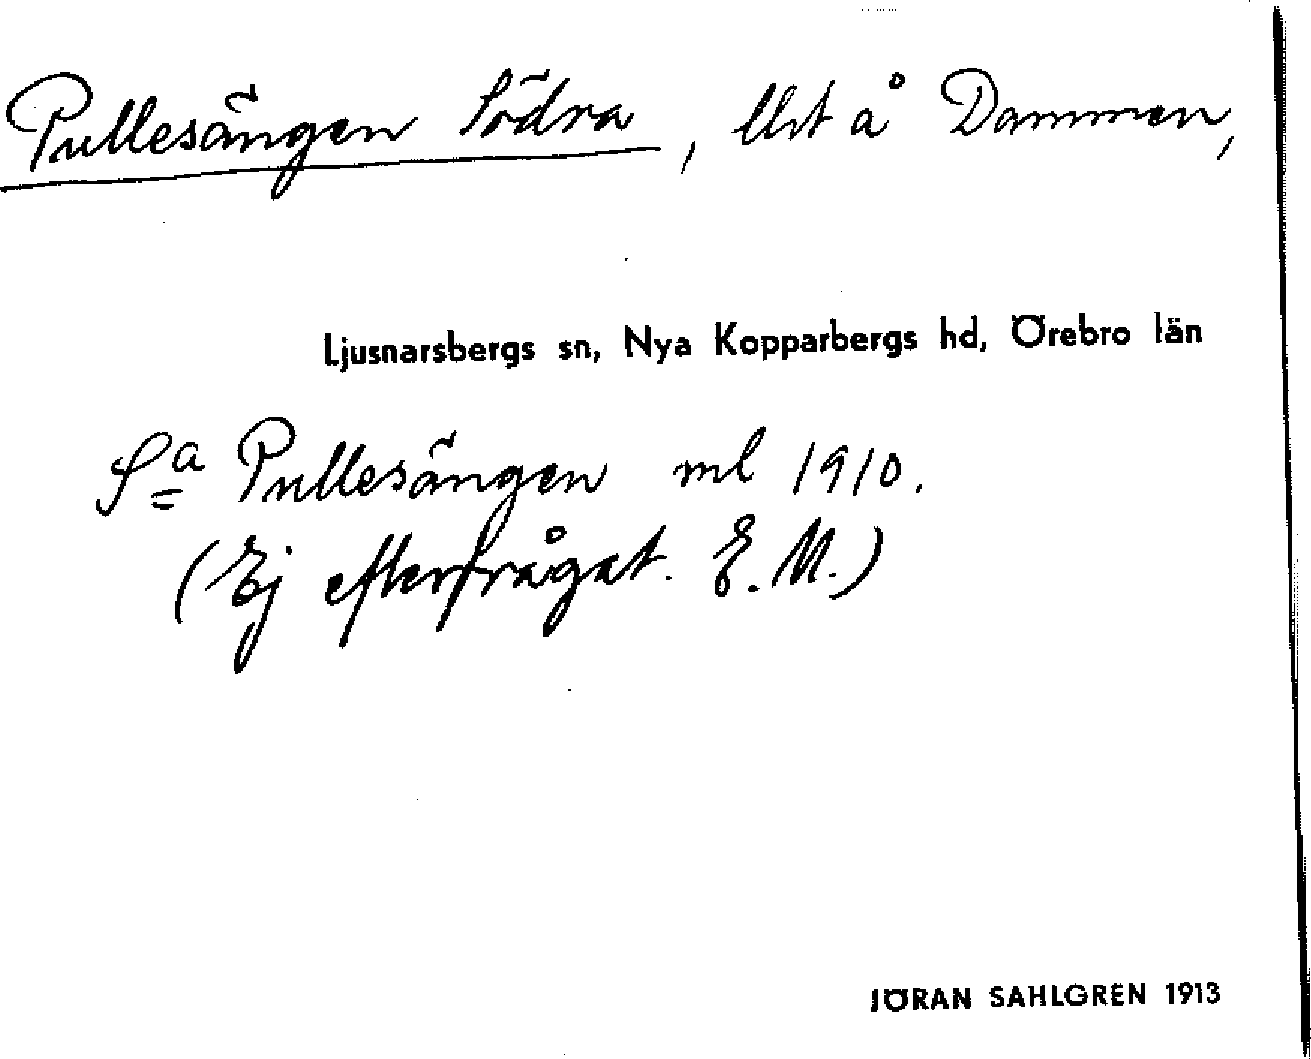 Pullesängen Södra, lht å Dammen,
Ljusnarsbergs sn, Nya Kopparbergs hd, Örebro län
Sa Pullesängen ml 1910.
(Ej efterfrågat. E. M.)
JÖRAN SAHLGREN 1913